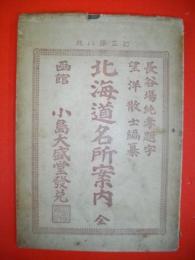 長谷場純孝題字
望洋散士編纂
北海道名所案内 全
函館 小島大盛堂發兌